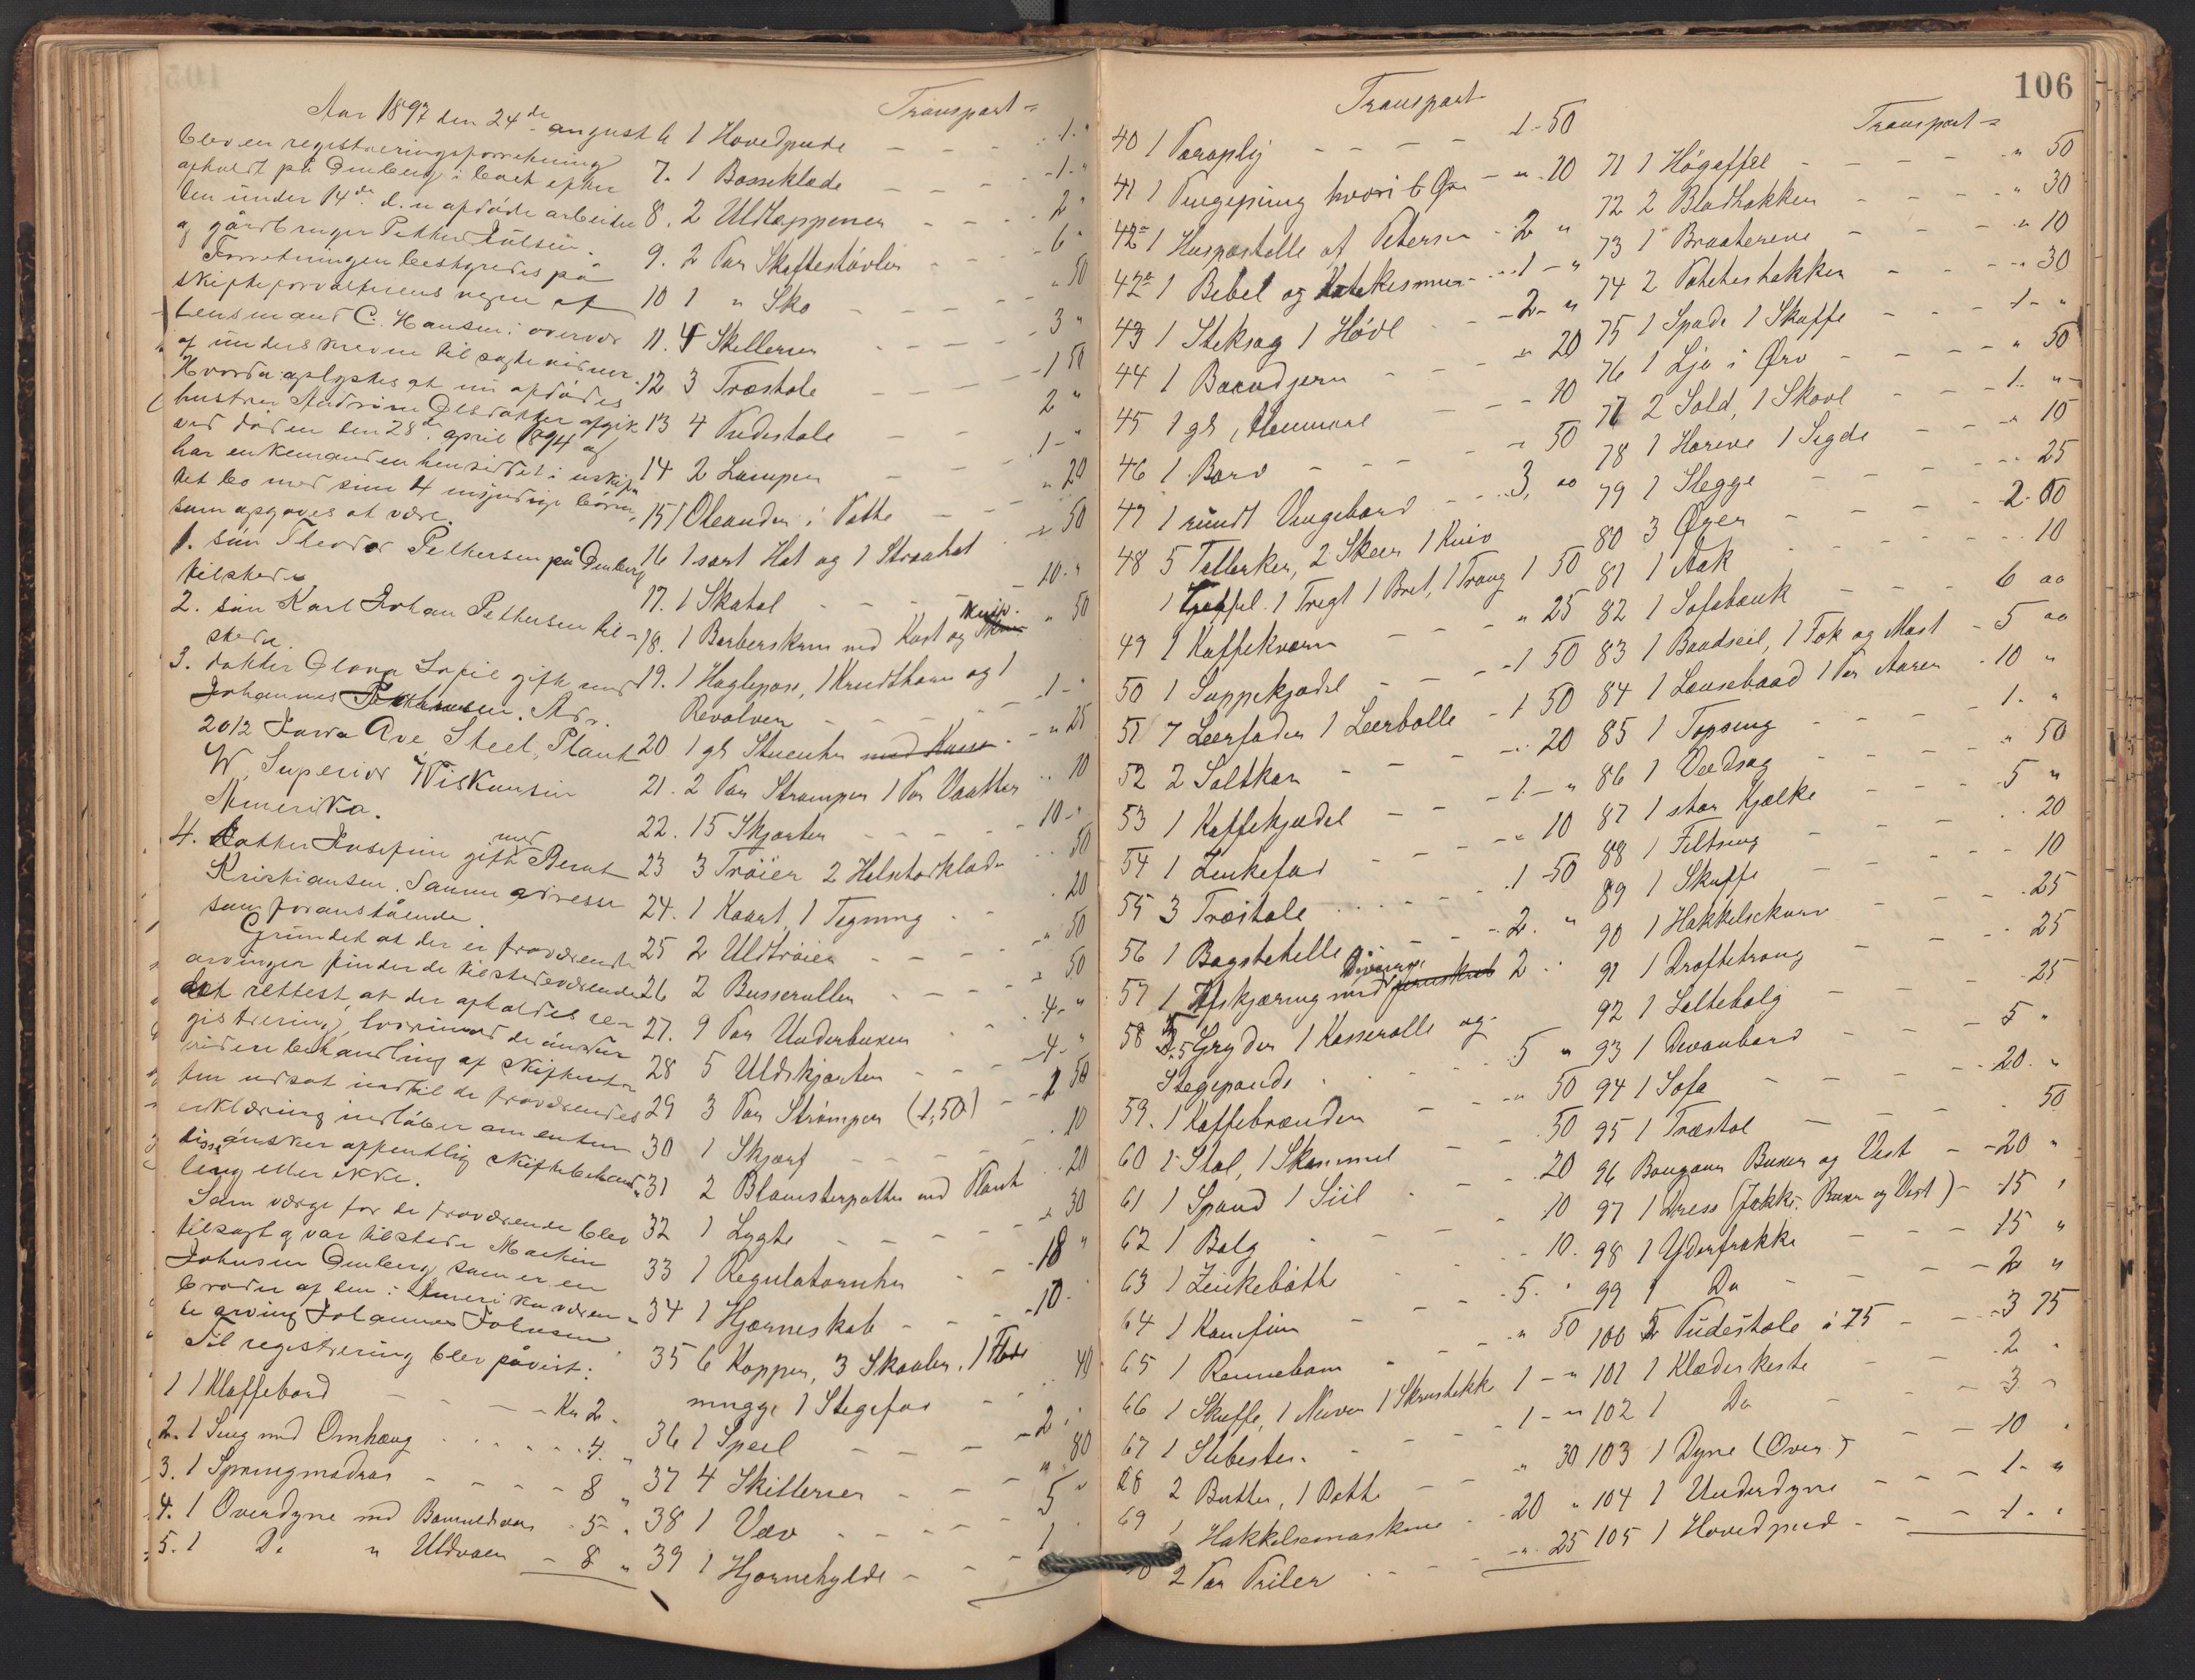 Aar 1897 den 24de august
blev en registreringsforretning
afholdt på Demberg i boet efter
den under 14de d. m afdøde arbeider
og gårdbruger Petter Julsen.
Forretningen bestyredes på
skifteforvalterens vegne af
lensmand C. Hansen i overvær
af underskrevne tilsagte vidner.
Hvorda oplystes at nu afdødes
hustru Andrine Olsdatter afgik
ved døden den 28de april 1894 og
har enkemanden hensiddet i uskif
tet bo med sine 4 myndige børn,
som opgaves at være.
1. søn Theodor Pettersen på Demberg
tilstede
2. søn Karl Johan Pettersen til-
stede.
3. datter Olava Sofie gift med
Johannes Adr.
2012 Iowa Ave, Steel, Plant
W. Superior Wiskunsin
Amerika.
4. Datter Josefine gift med Bernt
Kristiansen. Samme adresse
som foranstående
Grundet at der er fraværende
arvinger finder de tilstedeværende
det rettest, at der afholdes re-
gistrering, hvorimod de ønsker
videre behandling af skifteret-
ten udsat indtil de fraværendes
erklæring indløber om enten
disse ønsker offentlig skiftebehand-
ling eller ikke.
Som værge for de fraværende blev
tilsagt og var tilstede Martin
Johnsen Demberg, som er en
broder af den i Amerika væren-
de arving Johannes Johnsen
Til registrering blev påvist:
1 1 Klaffebord - - - Kr 2 -
2. 1 Seng med Omhæng . . . . 4. "
3. 1 Springmadras - - - - 8 "
4. 1 Overdyne med Bomuldsvar 5 - "
5. 1 Do " Uldvaer - 8 "
Transport =
6 1 Hovedpude - - - 1 - "
7. 1 Bosseklæde - - - 1 - "
8. 2 Uldtæppener - - - 2 "
9. 2 Par Skaftestøvler - - - 6 "
10 1 " Sko - - - " 50
11. 4 Skillerier - - - 3 "
12 3 Træstole - - - 1 50
13 4 Pudestole - - - 2 "
14 2 Lamper - - - 1 - "
15 1 Oleander i Potte - - " 20
16 1 sort Hat og 1 Straahat - " 50
17. 1 Skatol - - - 10 - "
18. 1 Barberskrin med Kost og Kniv. " 50
19. 1 Haglepose, 1 Krudthorn og 1
Revolver - - - 1 - "
20 1 gl Stueuhr med Kasse - " 25
21. 2 Par Strømper 1 Par Vaatter .. 10
22. 15 Skjorter - - - 10 - "
23 3 Trøier 2 Halstørklæder .. 50
24. 1 Kaart, 1 Tegning . . 20
25 2 Uldtrøier - - - " 50
26 2 Busseruller - - - " 50
27. 9 Par Underbuxer . . . 4 - "
28 5 Uldskjorter - - - 4 - "
29 3 Par Strømper (1,50) - 1 50
30 1 Skjærf - - - . 10
31 2 Blomsterpotter med Plant . 20
32 1 Lygte - - - " 30
33 1 Regulatoruhr - - - 18 "
34 1 Hjørneskab - - - 10 -
35 6 Kopper, 3 Skaaler, 1 Fløde
mugge 1 Stegefad - .. 40
36 1 Speil - - - 2 "
37 4 Skillerier - - - " 80
38 1 Væv - - - 5 "
39 1 Hjørnehylde - - - 1
106
Transport
40 1 Paraply - - - 1 - 50
41 1 Pengepung hvori 6 Øre - " 10
42 1 Huspostille af Petersen - 2 "
42a 1 Bibel og Katekesmus - 1 - "
43 1 Stiksag 1 Høvl - - 2 - "
44 1 Brændjern - - - " 20
45 1 gl, Hammer - - - 10
46 1 Borv - - - " 50
47 1 rundt Vengebord - - - 3, oo
48 5 Tallerker, 2 Skeer 1 Kniv
1 Gaffel 1 Tregt 1 Bret, 1 Traug 1 50
49 1 Kaffekværn - - - " 25
50 1 Suppekjedel - - - 1 50
51 7 Leerfader 1 Leerbolle - 1 50
52 2 Saltkar - - - " 20
53 1 Kaffekjedel - - - 1 - "
54 1 Zinkefad - - - " 10
55 3 Træstole . . . . 1 50
56 1 Bagstehelle - - - 2. "
57 1 Afskjæring med Diverse 2 "
58 5 Gryder 1 Kasserolle og
Stegepande . . . 5 "
59. 1 Kaffebrænder - - " 50
60 1 Stol, 1 Skammel - - 50
61 1 Spand 1 Siil - - - 20
62 1 Balg - - - 10
63 1 Zinkebøtte - - - 10.
64 1 Komfur - - - 5. "
65 1 Rennebom - - - " 50
66 1 Skuffe, 1 Naver 1 Skrustikke 1 - "
67 1 Slibesten. - - - 1 - "
68 2 Butter, 1 Potte - - " 30
69 1 Hakkelsemaskine - - 20 "
70 2 Par Triler - - - " 25
Transport =
71 1 Høgaffel - - - " 50
72 2 Bladhakker - - - " 30
73 1 Braaterive - - - " 10
74 2 Potetestakker - - - " 30
75 1 Spade 1 Skuffe - - - 1 - "
76 1 Ljo i Orv - - - " 50
77 2 Sold, 1 Skovl - - - 1. "
78 1 Harive 1 Segde - - - " 10
79 1 Slegge - - - .. 25
80 3 Øxer - - - 2. 00
81 1 Aak - - - 10
82 1 Sofabænk - - - 6 oo
83 1 Baadseil, 1 Fok og Mast - 5 oo
84 1 Lensebaad 1 Par Aarer - 10 "
85 1 Topseng - - - 1. "
86 1 Vedsag - - - " 50
87 1 stor Kjælke - - - 5 "
88 1 Filtseng - - - .. 20
89 1 Skuffe - - - 10
90 1 Hakkelsekurv - - - . 25
91 1 Drøftetraug - - - .. 25
92 1 Saltebalg - - - 25
93 1 Devanbord - - - 5 "
94 1 Sofa - - - 20. "
95 1 Træstol - - - 50
96 Bongaaer Buxer og Vest - - 20 "
97 1 Dress (Jakke, Buxer og Vest) - 15 "
98 1 Yderfrakke - - - 15 "
99 1 Do - - - 2 "
100 5 Pudestole à 75 - - - 3 75
101 1 Klædeskiste - - - 2 "
102 1 Do - - - 3 "
103 1 Dyne (Over) - - - 10 "
104 1 Underdyne - - - 1 - "
105 1 Hovedpude - - - 1 - "